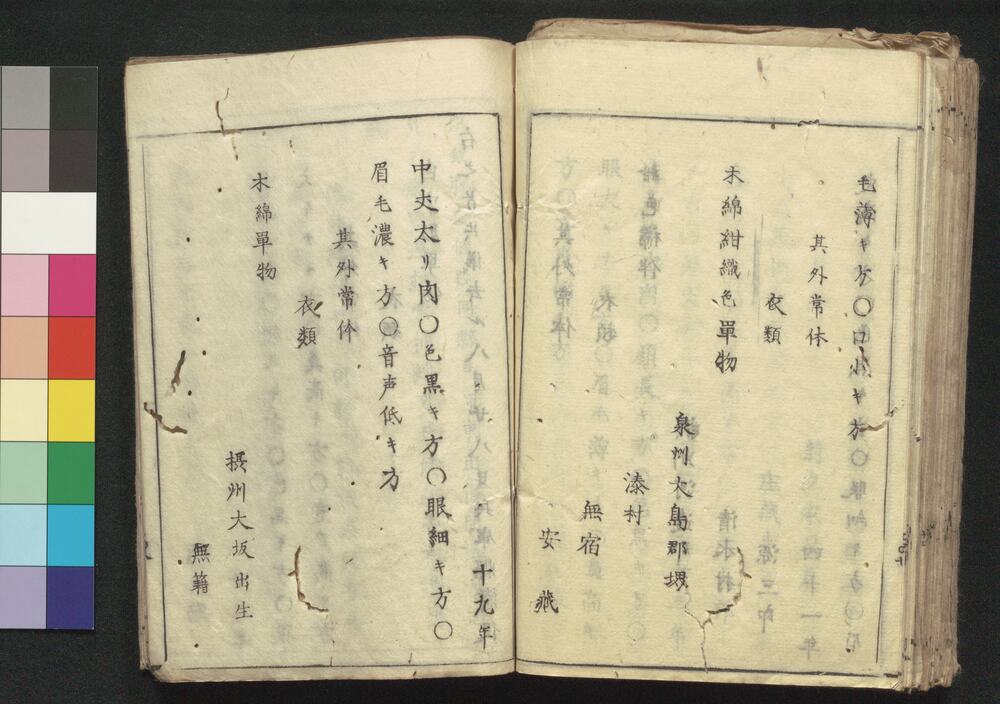 毛薄キ方〇口小キ方〇眼細キ方〇
其外常体
衣類
木綿紺織色單物
泉州大鳥郡堺
湊村
無宿
安藏
十九年
中丈太リ肉〇色黒キ方〇眼細キ方〇
眉毛濃キ方〇音声低キ方
其外常体
衣類
木綿單物
摂州大坂出生
無籍